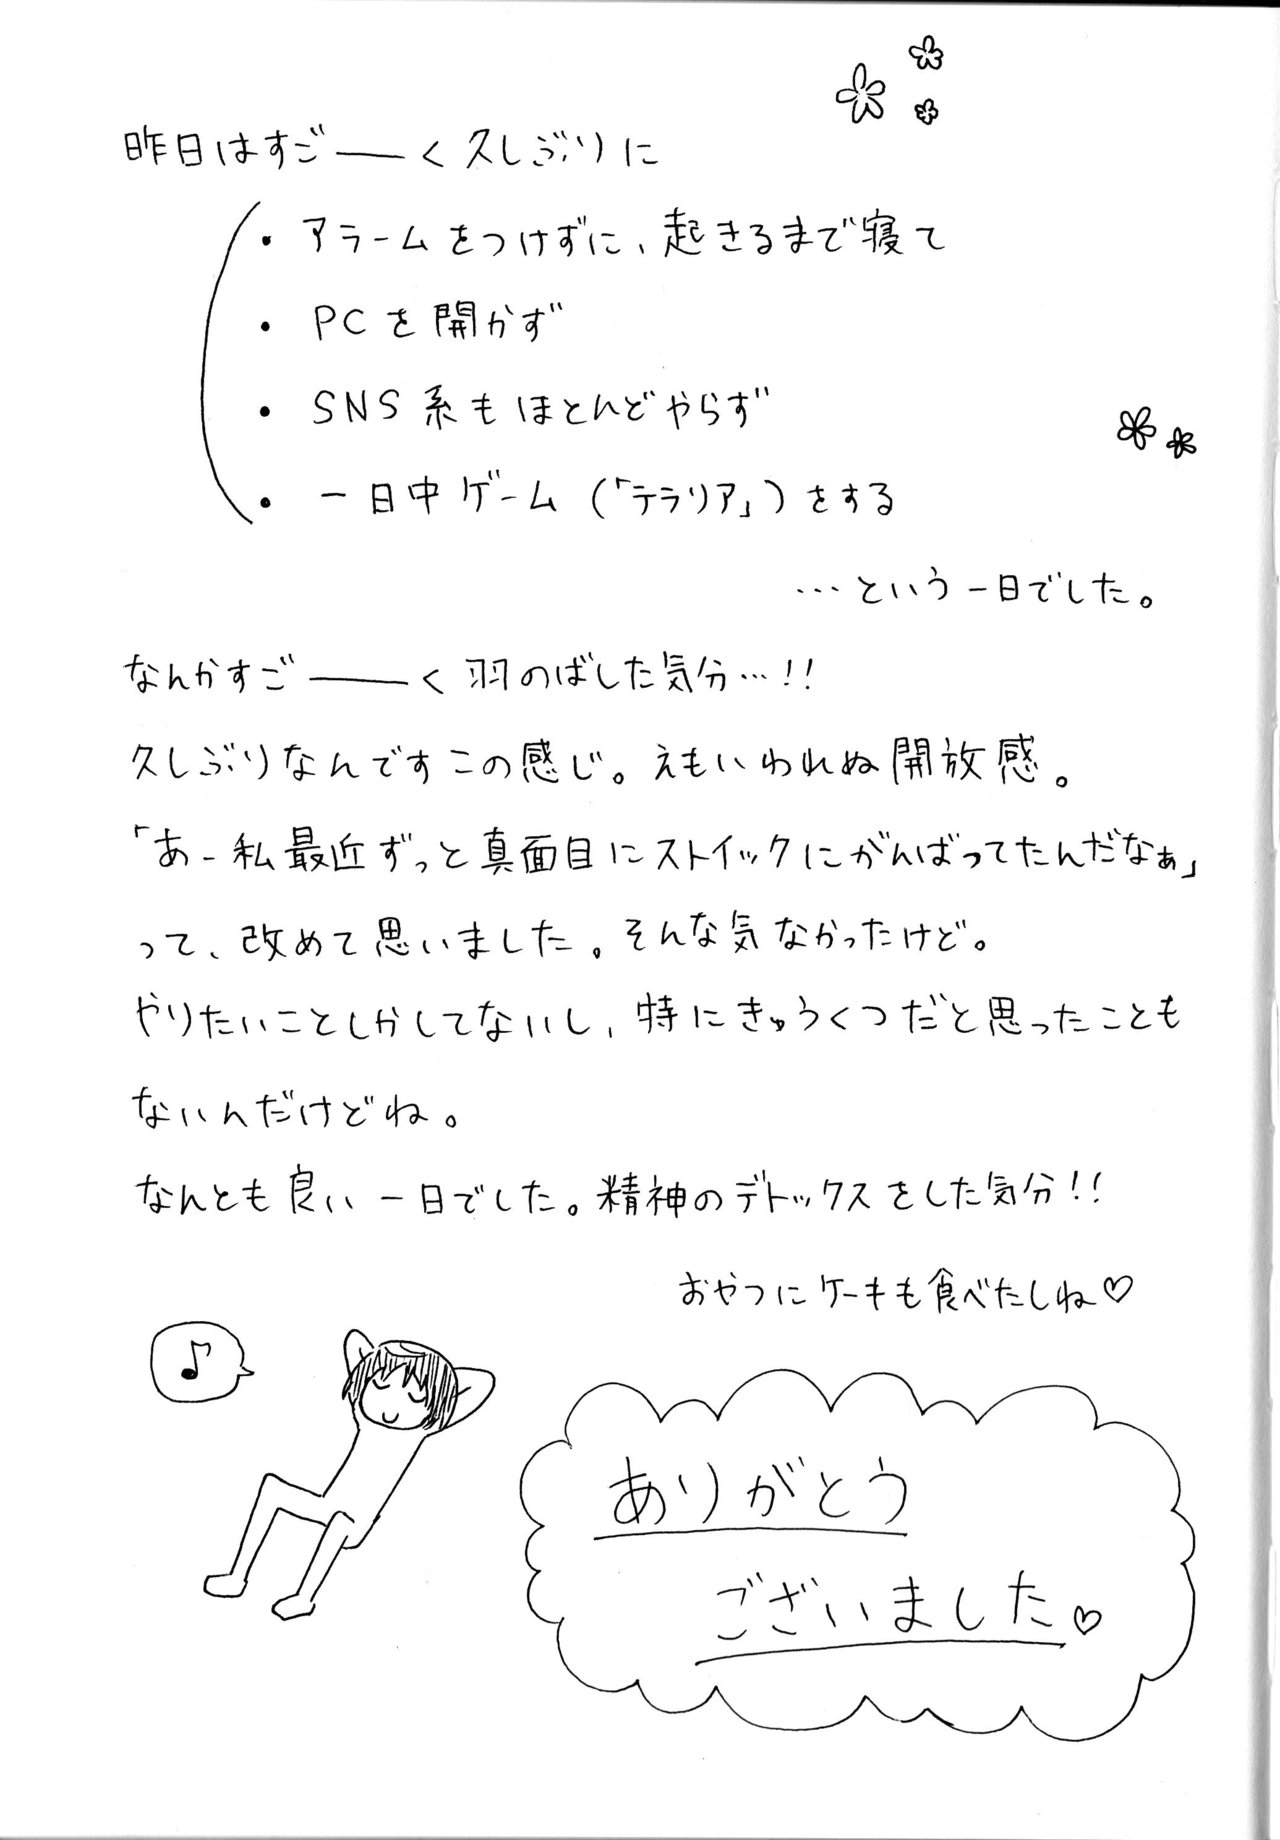 昨日はすごーーく久しぶりに
・アラームをつけずに、起きるまで寝て
・PCを開かず
・SNS系もほとんどやらず
・一日中ゲーム(「テラリア」)をする
…という一日でした。
なんかすごーーく羽のばした気分…!!
久しぶりなんですこの感じ。えもいわれぬ開放感。
「あー私最近ずっと真面目にストイックにがんばってたんだなぁ」
って、改めて思いました。そんな気なかったけど。
やりたいことしかしてないし、特にきゅうくつだと思ったことも
ないんだけどね。
なんとも良い一日でした。精神のデトックスをした気分!!
おやつにケーキも食べたしね♡
♪
ありがとう
ございました♡